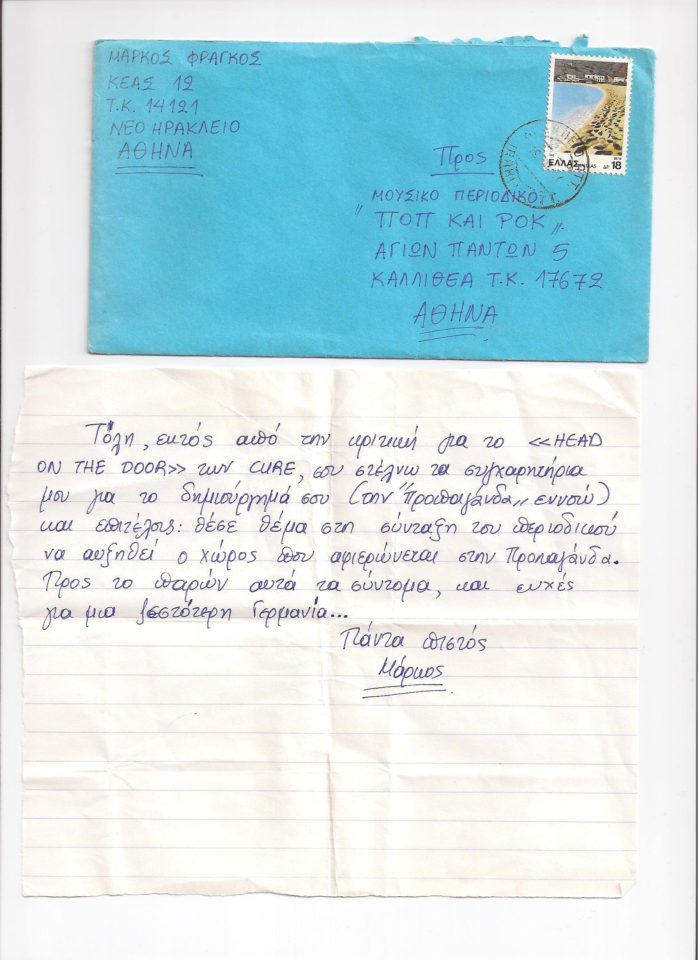 ΜΑΡΚΟΣ ΦΡΑΓΚΟΣ
ΚΕΑΣ 12
Τ.Κ. 14121
ΝΕΟ ΗΡΑΚΛΕΙΟ
ΑΘΗΝΑ
ΕΛΛΑΣ HELLAS ΔΡ 18
Προς
ΜΟΥΣΙΚΟ ΠΕΡΙΟΔΙΚΟ
" ΠΟΠ ΚΑΙ ΡΟΚ „
ΑΓΙΩΝ ΠΑΝΤΩΝ 5
ΚΑΛΛΙΘΕΑ Τ.Κ. 17672
ΑΘΗΝΑ
Τόλη, εκτός από την κριτική για το <<HEAD
ON THE DOOR>> των CURE, σου στέλνω τα συγχαρητήρια
μου για το δημιούργημά σου (την "προπαγάνδα„ εννοώ)
και επιτέλους: θέσε θέμα στη σύνταξη του περιοδικού
να αυξηθεί ο χώρος που αφιερώνεται στην Προπαγάνδα.
Προς το παρών αυτά τα σύντομα, και ευχές
για μια ζεστότερη Γερμανία...
Πάντα πιστός
Μάρκος